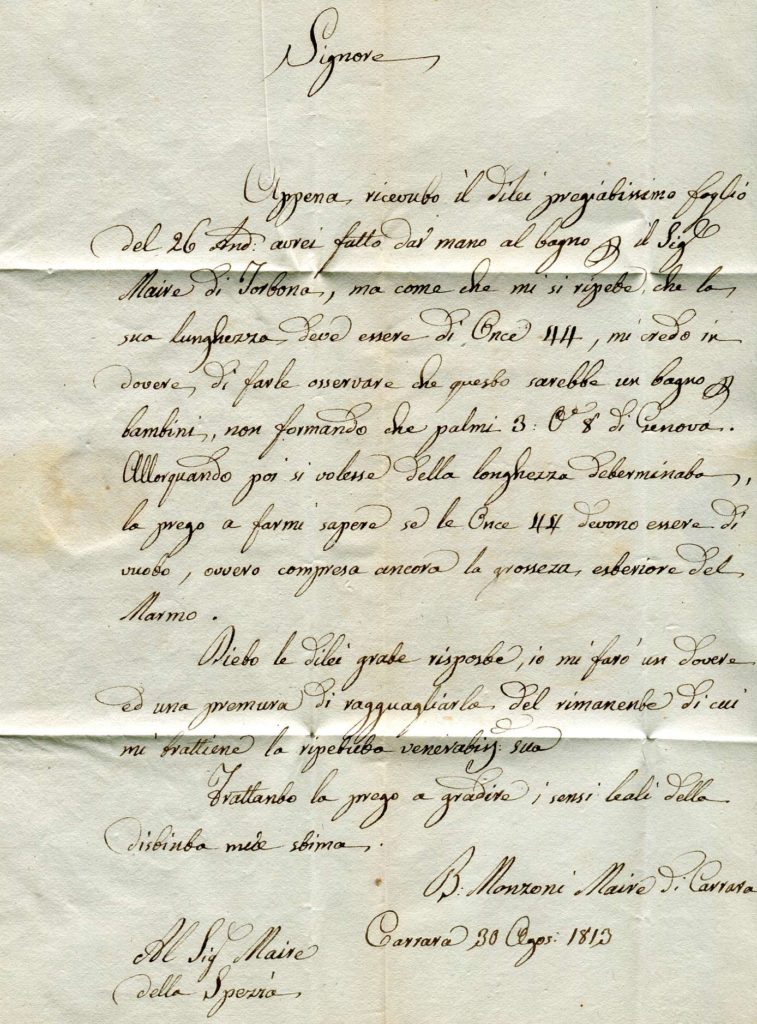 Signore
Appena ricevuto il dilei pregiatissimo foglio
del 26 And: avrei fatto dar mano al bagno p il Sigr
Maire di Torbona, ma come che mi si ripete che la
sua lunghezza deve essere di Once 44, mi credo in
dovere di farle osservare che questo sarebbe un bagno p
bambini, non formando che palmi 3: Oe 8 di Genova.
Allorquando poi si volesse della longhezza determinata,
la prego a farmi sapere se le Once 44 devono essere di
vuoto, ovvero compresa ancora la grosseza esteriore del
Marmo.
Dietro le dilei grate risposte, io mi farò un dovere
ed una premura di ragguagliarla del rimanente di cui
mi trattiene la ripetuta sua
Frattanto la prego a gradire i sensi leali della
distinta mia stima.
B: Monzoni Maire di Carrara
Carrara 30 Agos: 1813
Al Sigr Maire
della Spezzia